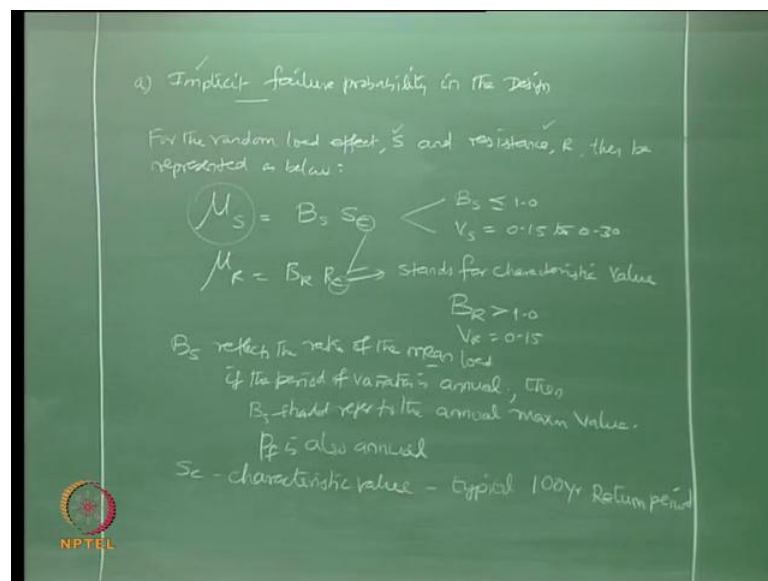 a) Implicit failure probability in the Design
For the random load effect, S and resistance, R, then be
represented as below:
μ_S = B_S S_C
B_S ≤ 1.0
V_S = 0.15 to 0.30
μ_R = B_R R_C → stands for characteristic value
B_R > 1.0
V_R = 0.15
B_S reflects the ratio of the mean load
if the period of variation is annual, then
B_S should refer to the annual maxm value.
Pf is also annual
S_C - characteristic value - typical 100yr Return period
NPTEL